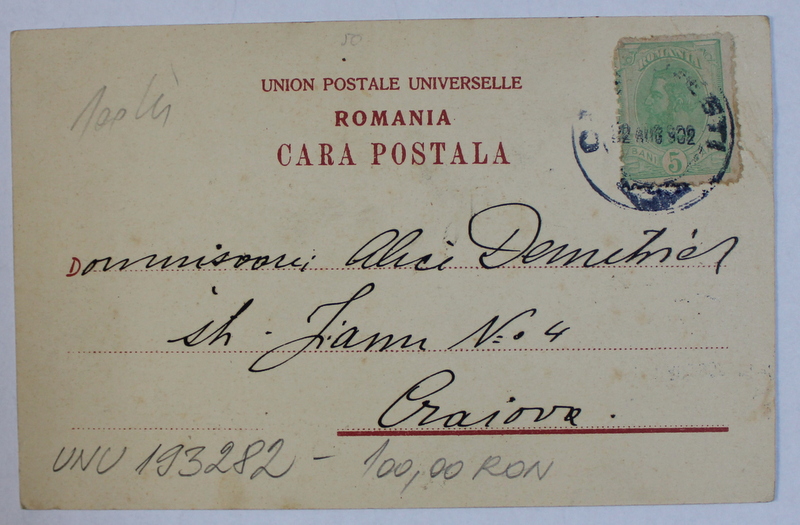 50
100 lei
UNION POSTALE UNIVERSELLE
ROMANIA
CARA POSTALA
ROMANIA
BANI 5
2 AUG 902
ESTI
Domnisoarei Alice Demetrieł
str. Jianu No 4
Craiova.
UNU 193282 - 100,00 RON